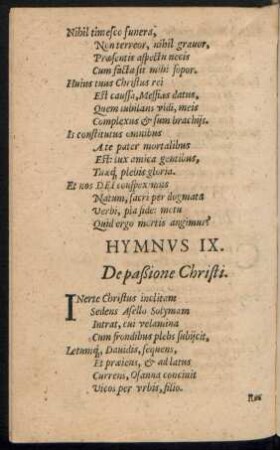 Nihil timesco funera,
Non terreor, nihil gravor,
Præsentis aspectu necis
Cum facta sit mihi sopor.
Huius tuus Christus rei
Est caussa, Messias datus,
Quem iubilans vidi, meis
Complexus & sum brachijs.
Is constitutus omnibus
A te pater mortalibus
Est: lux amica gentibus,
Tuæq; plebis gloria.
Et nos DEI conspeximus
Natum, sacri per dogmata
Verbi, pia fide: metu
Quid ergo mortis angimur?
HYMNVS IX.
De paßione Christi.
INerte Christus inclitam
Sedens Asello Solymam
Intrat, cui velamina
Cum frondibus plebs subijcit,
Lætumq;, Dauidis, sequens,
Et præiens, & ad latus
Currens, Osanna concinit
Vicos per vrbis, filio.